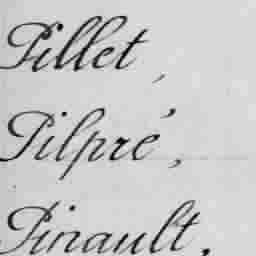 Pillet,
Pilpré,
Pinault,